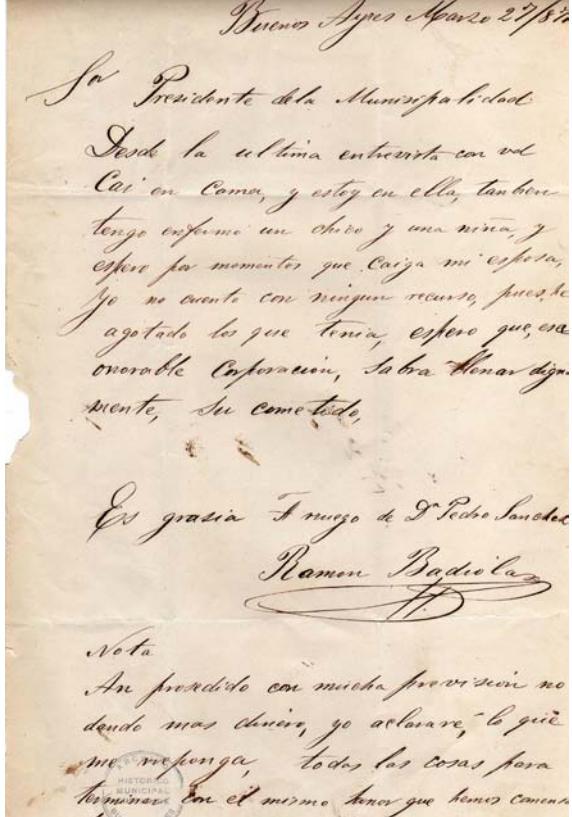 Buenos Ayres Marzo 27/87
Sor Presidente dela Munisipalidad
Desde la ultima entrevista con vd
Cai en Cama, y estoy en ella, tanbien
tengo enfermo un chico y una niña, y
espero por momentos que Caiga mi esposa,
Yo no cuento con ningun recurso, pues, he
agotado los que tenia, espero que, esa
onorable Corporacion, Sabra llenar digna
mente, Su cometido,
Es grasia A ruego de Dn Pedro Sanchez
Ramon Badiola
Nota
An prosedido con mucha prevision no
dando mas dinero, yo aclarare, lo que
me reponga, todas las cosas para
terminar con el mismo tenor que hemos comensa
HISTORICO
MUNICIPAL